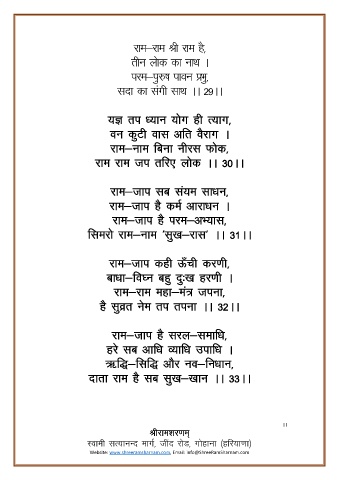 राम–राम श्री राम है,
तीन लोक का नाथ ।
परम–पुरुष पावन प्रभु,
सदा का संगी साथ ।। 29।।
यज्ञ तप ध्यान योग ही त्याग,
वन कुटी वास अति वैराग ।
राम–नाम बिना नीरस फोक,
राम राम जप तरिए लोक ।। 30।।
राम–जाप सब संयम साधन,
राम–जाप है कर्म आराधन ।
राम–जाप है परम–अभ्यास,
सिमरो राम–नाम 'सुख–रास' ।। 31।।
राम–जाप कही ऊँची करणी,
बाधा–विघ्न बहु दुःख हरणी ।
राम–राम महा–मंत्र जपना,
है सुव्रत नेम तप तपना ।। 32।।
राम–जाप है सरल–समाधि,
हरे सब आधि व्याधि उपाधि ।
ऋद्धि–सिद्धि और नव–निधान,
दाता राम है सब सुख–खान ।। 33।।
11
श्रीरामशरणम्
स्वामी सत्यानन्द मार्ग, जींद रोड, गोहाना (हरियाणा)
Website: www.shreeramsharnam.com, Email: info@ShreeRamSharnam.com